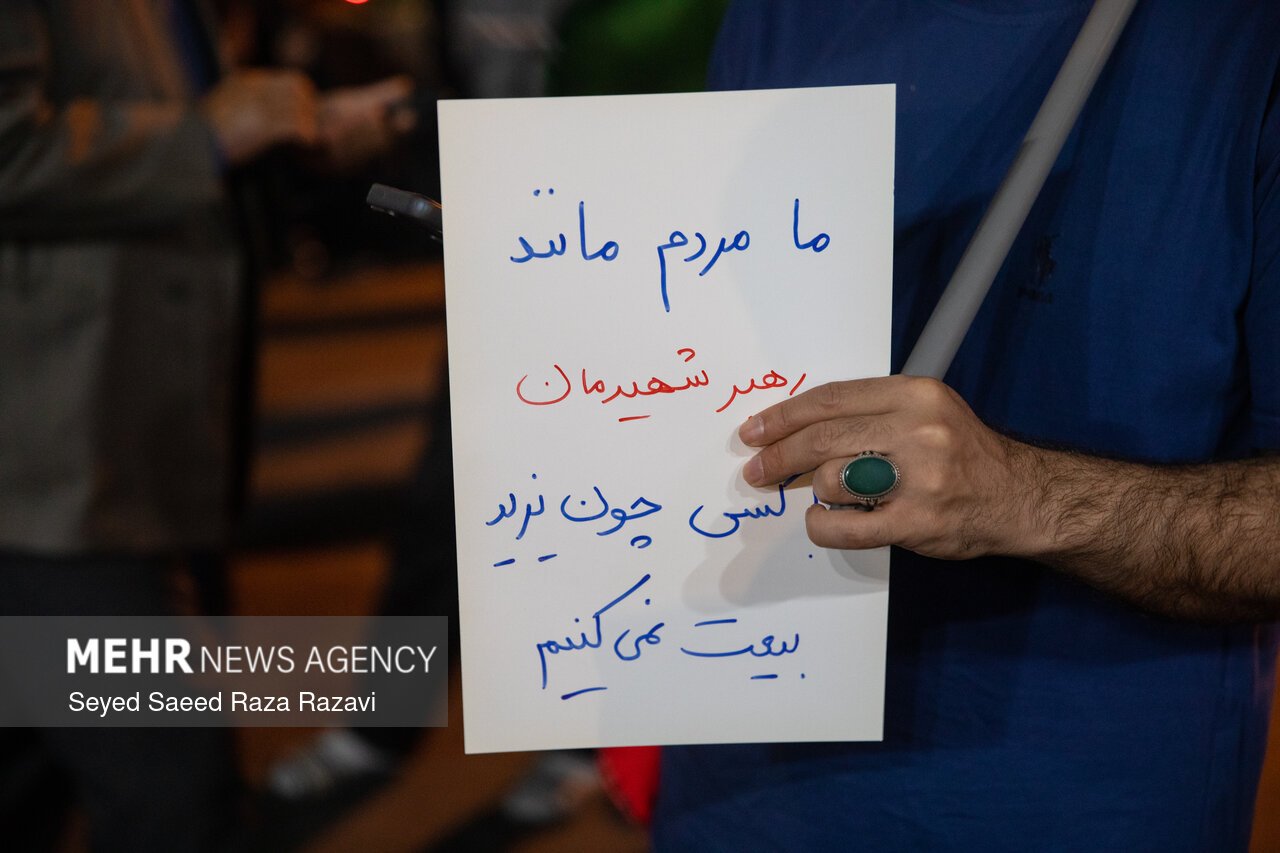 ما مردم مانند
رهبر شهیدمان
کسی چون یزید
بیعت نمی کنیم
MEHR NEWS AGENCY
Seyed Saeed Raza Razavi